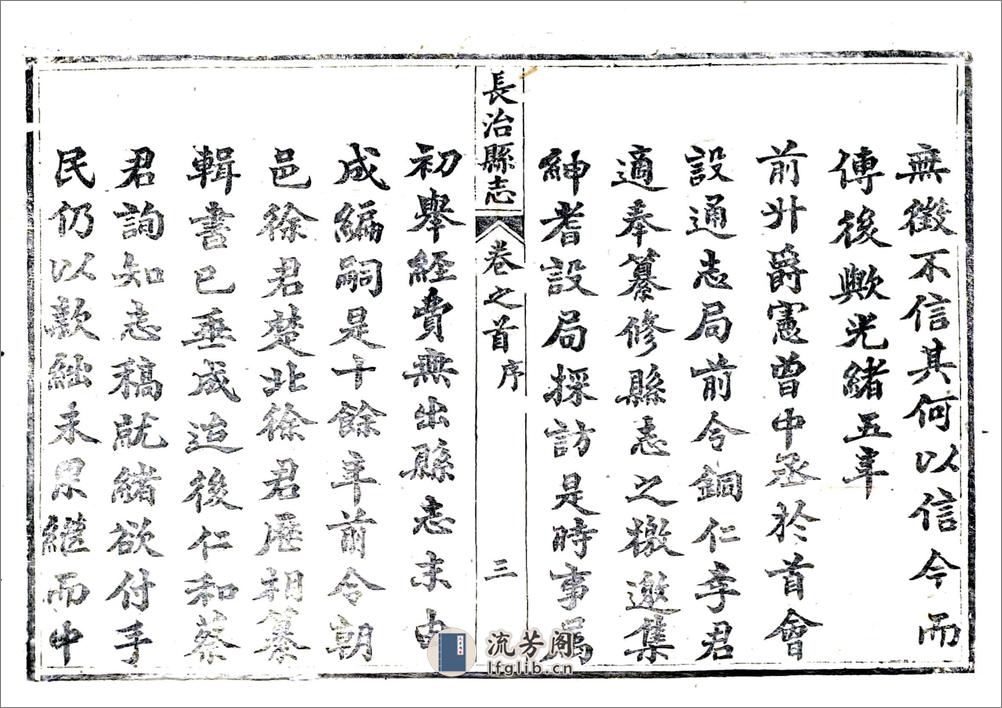 無徵不信其何以信今而
傳後歟光緒五年
前升爵憲曾中丞於首會
設通志局前令銅仁李君
適奉纂修縣志之檄邀集
紳耆設局採訪是時事屬
長治縣志
卷之首
序
三
初舉經費無出縣志未由
成編嗣是十餘年前令朝
邑徐君楚北徐君歷相纂
輯書已垂成迨後仁和蔡
君詢知志稿就緒欲付手
民仍以款絀未果繼而中
流芳阁
lfglib.cn